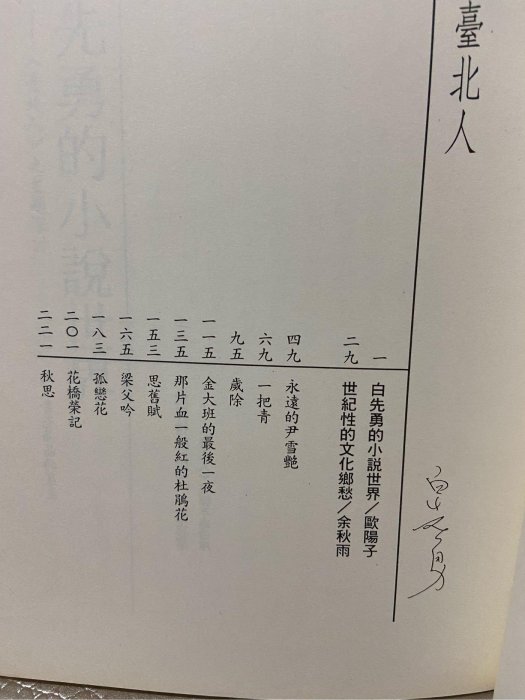 臺北人
白先勇
一 白先勇的小說世界／歐陽子
二九 世紀性的文化鄉愁／余秋雨
四九 永遠的尹雪艷
六九 一把青
九五 歲除
一一五 金大班的最後一夜
一三五 那片血一般紅的杜鵑花
一五三 思舊賦
一六五 梁父吟
一八三 孤戀花
二〇一 花橋榮記
二二一 秋思